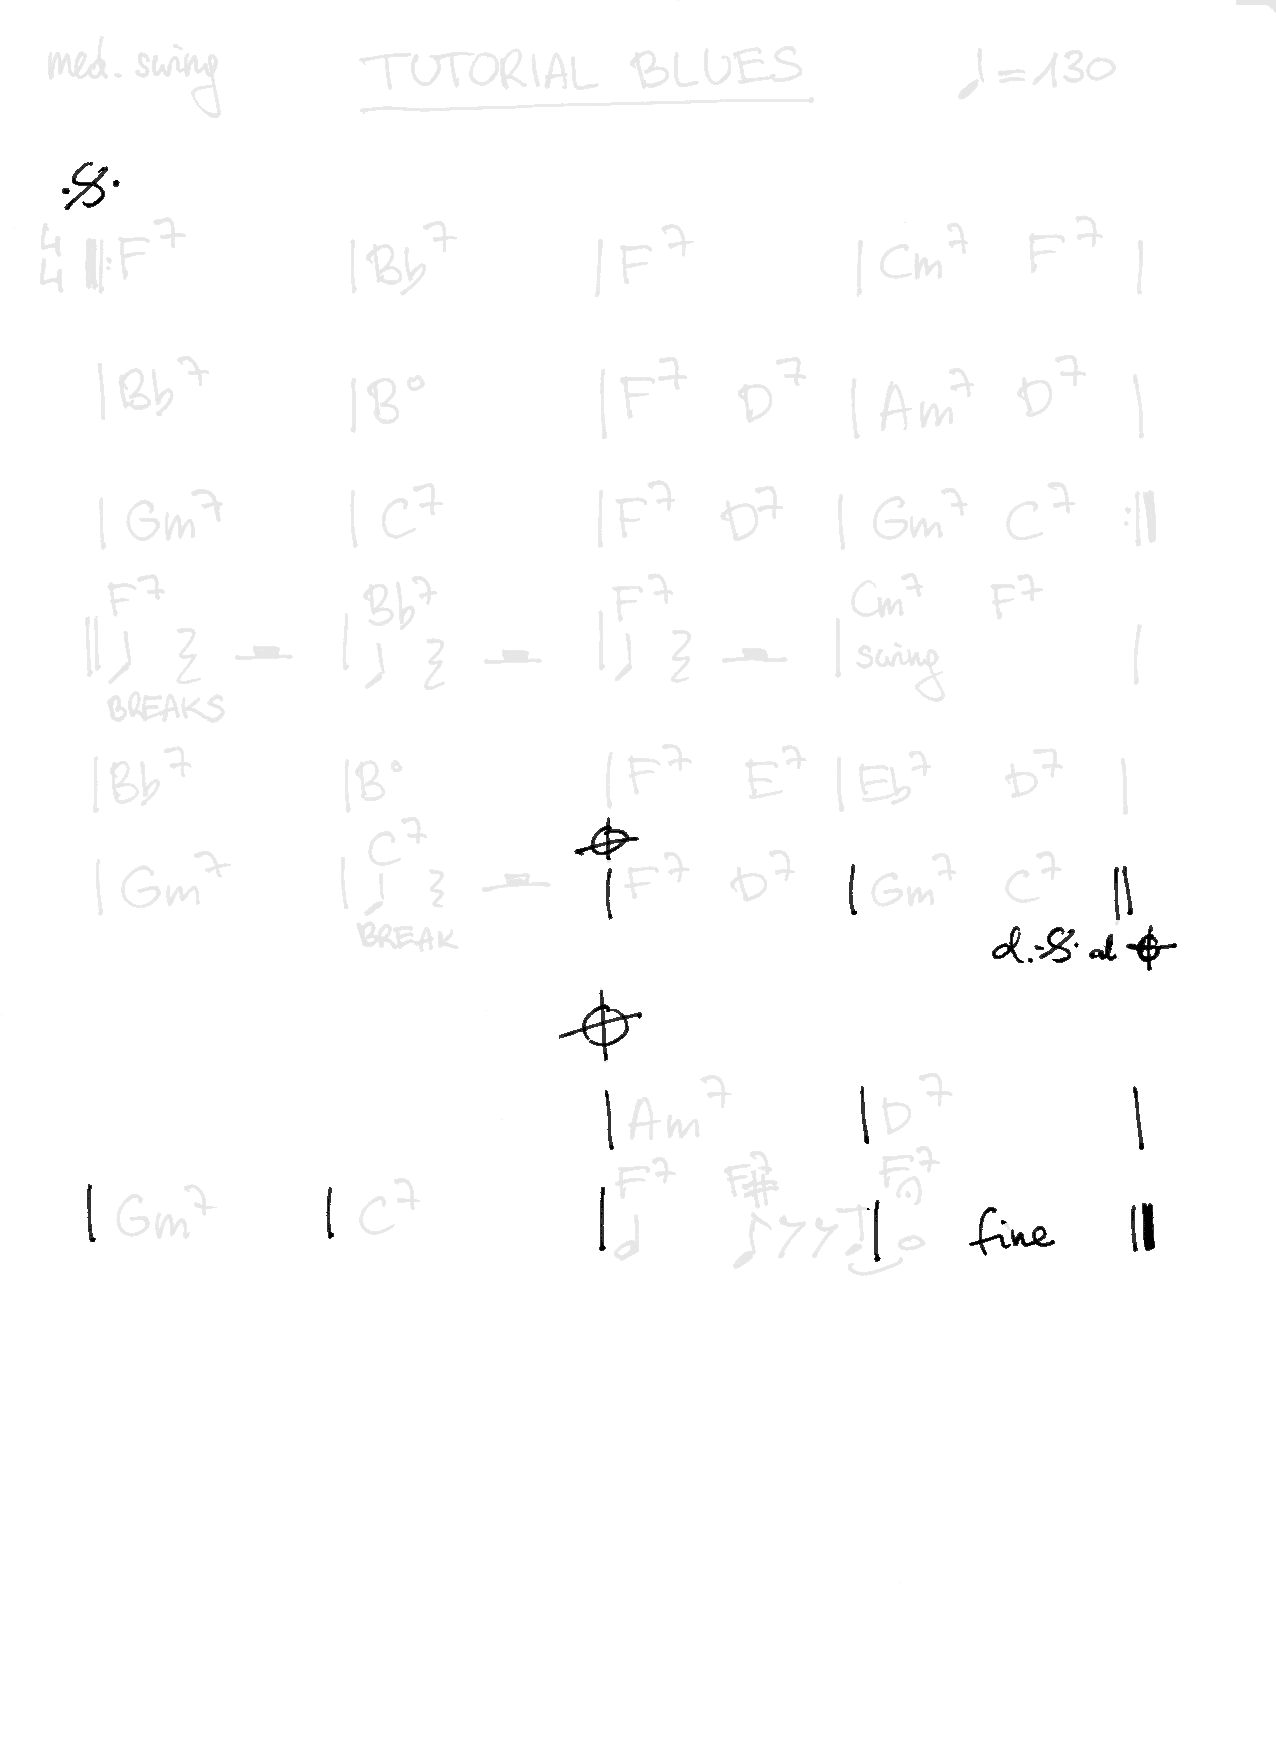 med. swing TUTORIAL BLUES ♩=130
𝄋
4/4 𝄆 F7 | Bb7 | F7 | Cm7 F7 |
| Bb7 | B° | F7 D7 | Am7 D7 |
| Gm7 | C7 | F7 D7 | Gm7 C7 𝄇
F7 Bb7 F7 Cm7 F7
|| ♩ 𝄽 𝄼 | ♩ 𝄽 𝄼 | ♩ 𝄽 𝄼 | swing |
BREAKS
| Bb7 | B° | F7 E7 | Eb7 D7 |
C7 𝄌
| Gm7 | ♩ 𝄽 𝄼 | F7 D7 | Gm7 C7 ||
BREAK d.𝄋 al 𝄌
𝄌
| Am7 | D7 |
F7 F#7 F7
| Gm7 | C7 | 𝅗𝅥 ♪ 𝄾 𝄾 ♪ | 𝅝 fine ||